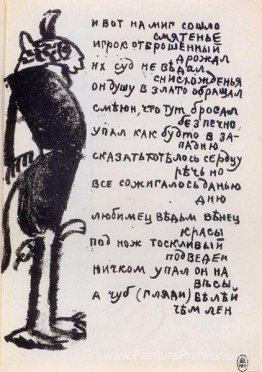 и вот на миг сошло
смятенье
игрок отброшенный
дрожал
их суд не вѣдал
снисхожденья
он душу в злато обращал
смѣюн, что тут бросал
безпечно,
упал как будто в за-
падню
сказать хотѣлось сердцу
рѣчь но
все сожигалось данью
дню
любимец вѣдьм вѣнец
красы
под нож тоскливый
подведен
ничком упал он на
вѣсы
а чуб (гляди) бѣлѣй
чѣм лен
www.PeinturePremier.com